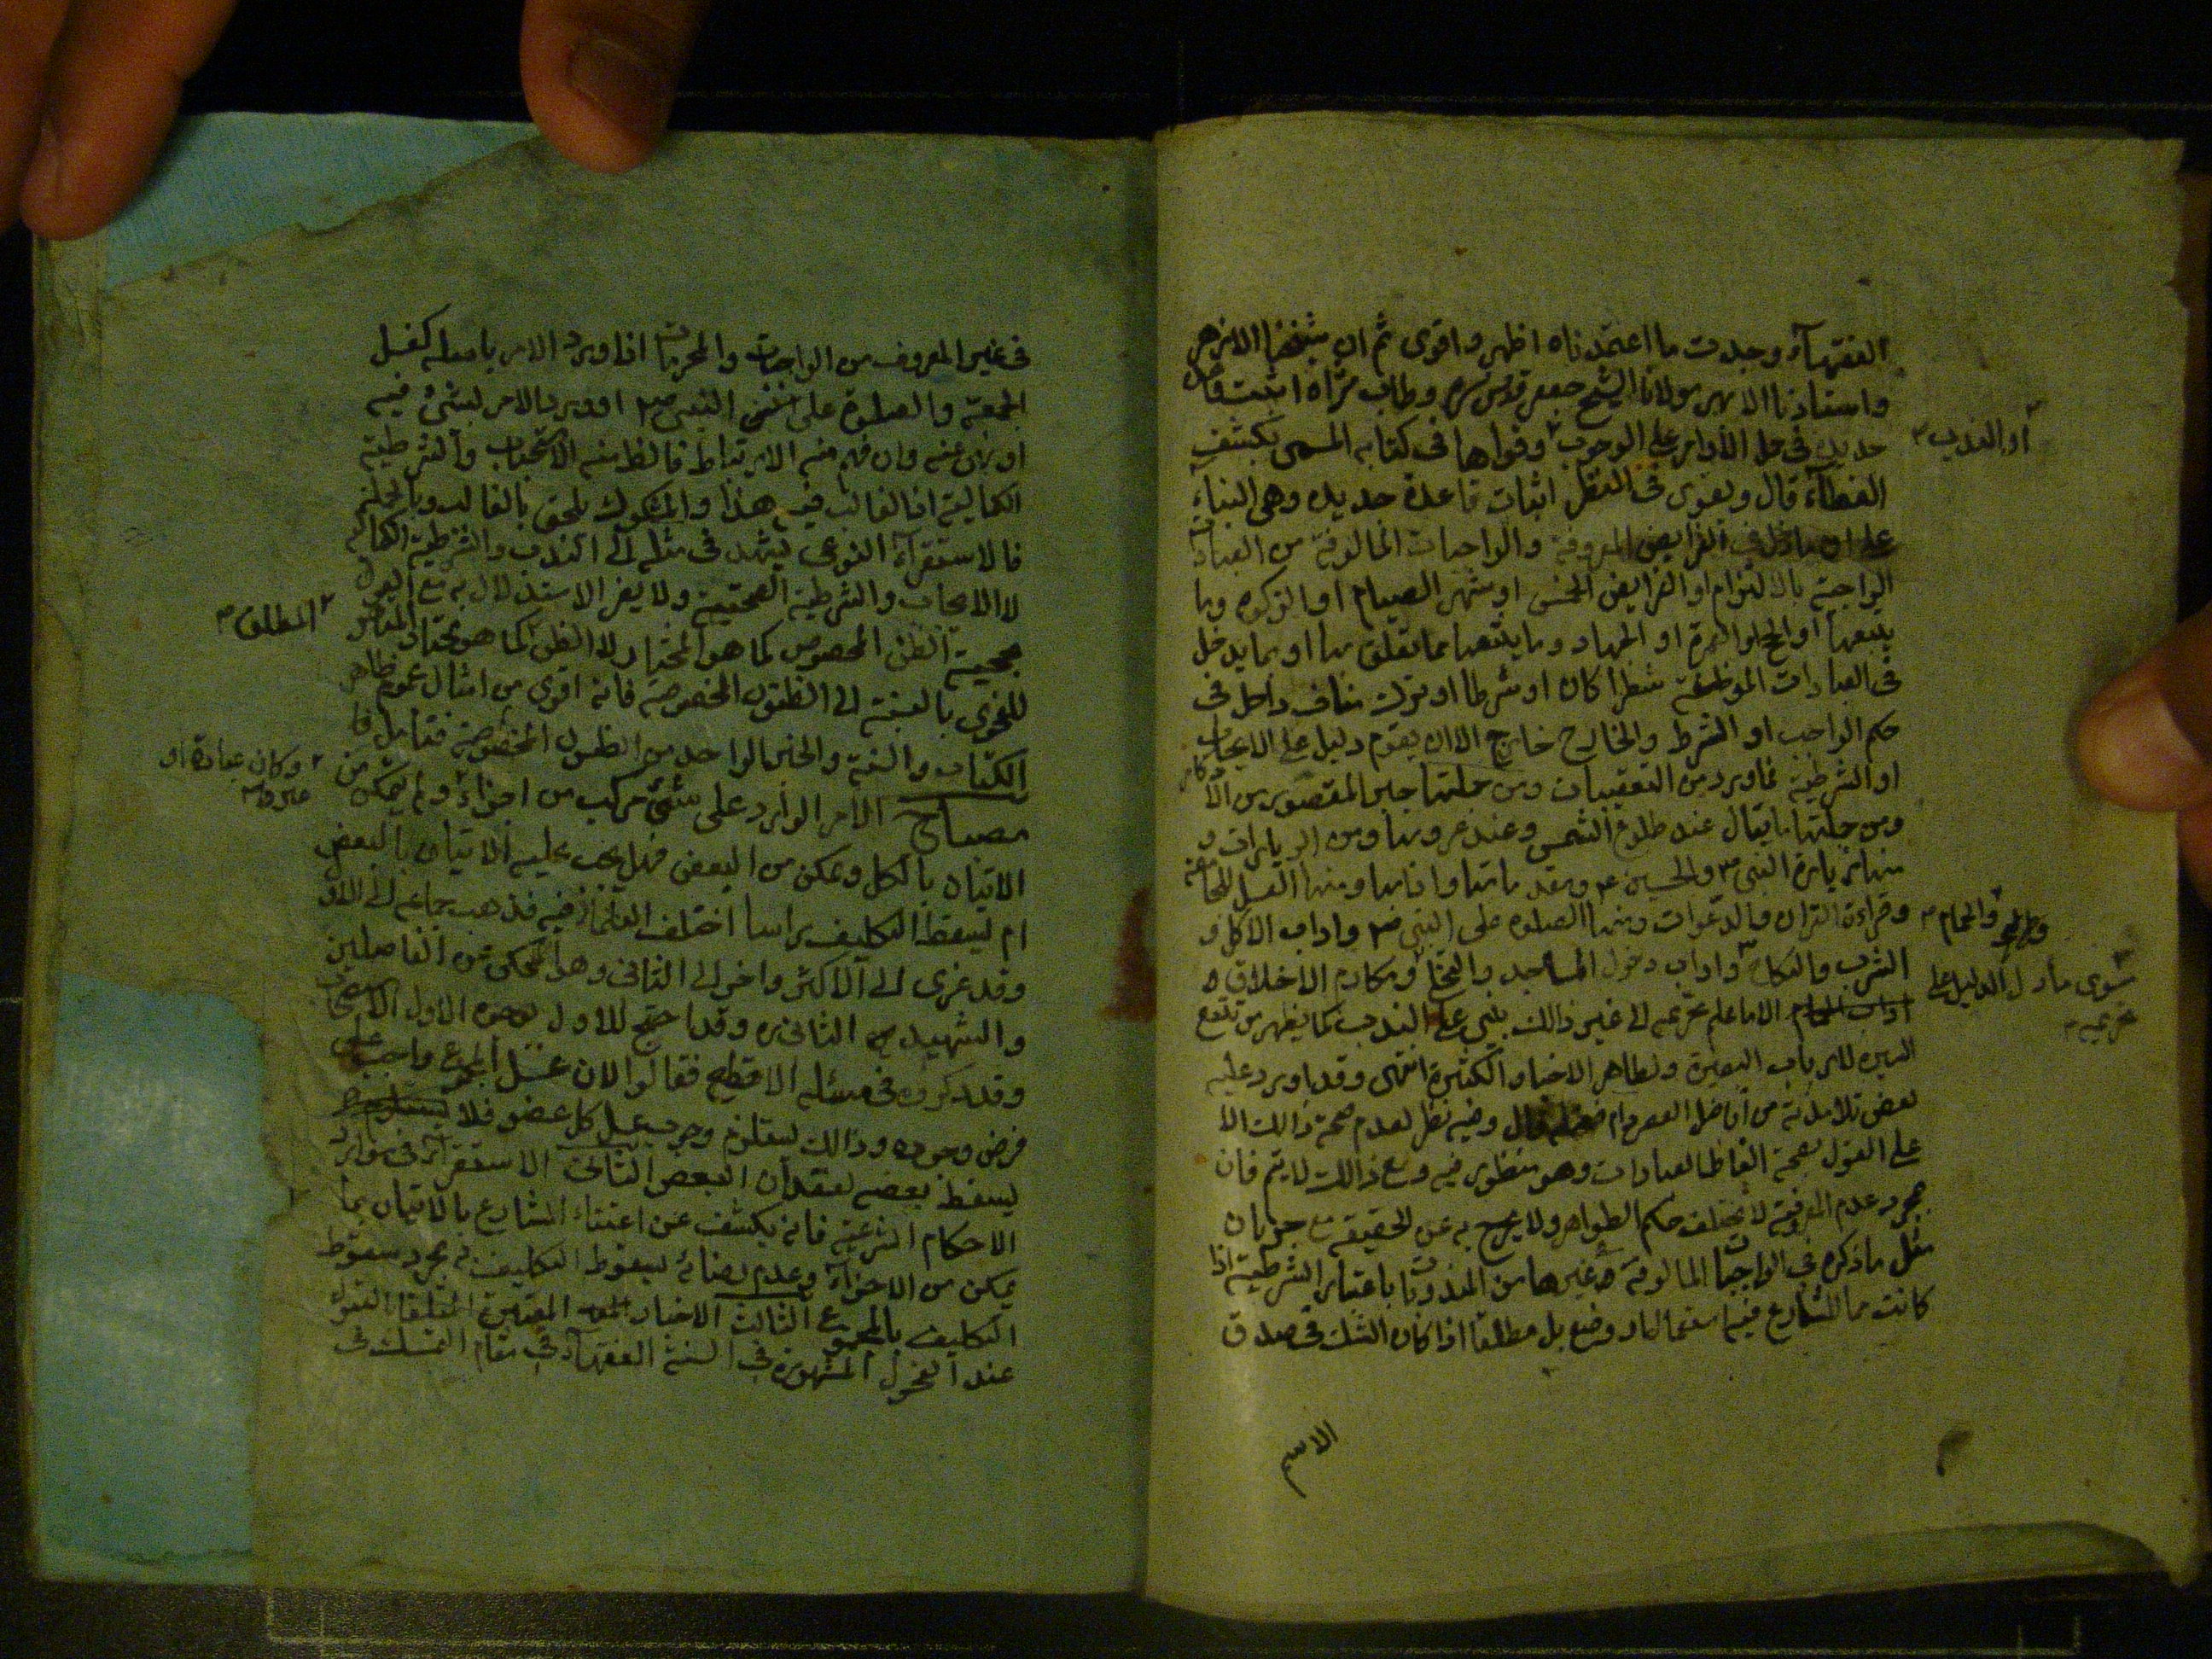 الفقهآء وجدت ما اعتمدناه اظهر واقوى ثم ان شيخنا الازهر
واستادنا الابهر مولانا الشيخ جعفر قدس سره وطاب ثراه اثبت قاعدة
جديدة في حمل الأوامر على الوجوب وقواها في كتابه المسمى بكشف
أو الندب
الغطآء قال ويقوى في النظر اثبات قاعدة جديده وهي البناء
على ان ما دخل في الفرايض المعروفة والواجبات المالوفة من العبادات
الواجبة بالالتزام او الفرايض الخمس او شهر الصيام او الزكوه وما
يتبعها او الحج والعمرة او الجهاد وما يتبعها مما تعلق بها او بما يدخل
في العبادات الموظفة شطرا كان او شرطا او ترك مناف داخل في
حكم الواجب او الشرط والخارج خارج الا ان يقوم دليل على الايجاب
او الشرطية فما ورد من التعقيبات ومن جملتها جبر المقصورين
ومن جملتها ما يقال عند طلوع الشمس وعند غروبها ومن الزيارات و
منها زيارة النبي ص والحسين ع وبعد ومنها الغسل للحاجة
وقراءة القران والدعوات ومنها الصلوة على النبي ص واداب الاكل و
والحمام
الشرب والنكاح واداب دخول المساجد والتخلي ومكارم الاخلاق
سوى ما دل الدليل على
عزيمته
الا ما علم عزيمته الى غير ذالك يبنى على الندب كما يظهر من تتبع
السيرة لارباب البصيرة وظاهر الاخبار الكثيرة انتهى وقد اورد عليه
بعض تلامذته من أفاضل العصر دام فضله قال وفيه نظر لعدم صحة ذالك الا
على القول بصحة الفاظ العبادات وهو منظور فيه ومع ذالك لا يتم فان
مجرد عدم المعرفة لا يختلف حكم الظواهر ولا يخرج به عن الحقيقة مع جريان
مثل ما ذكره في الواجبات المالوفة وغيرها من المندوبات باعتبار الشرطية اذا
كانت مما للشارع فيها استعمال او وضع بل مطلقا اذا كان الشك في صدق
الاسم
في غير المعروف من الواجبات والمحرمات اذا ورد الامر بافعله كغسل
الجمعة والصلوة على النبي ص او ورد الامر لشئ فيه
او نهى عنه وان فهم منه الارتباط فالظ منه الاستحباب والشرطية
الكمالية اذ الغالب فيه هذا والمشكوك يلحق بالغالب وبالجملة
فالاستقرآء النوعي يشهد في مثله الى الندب والشرطية الكمالية
لا الايجاب والشرطية الصحتيه ولا يضر الاستدلال به مع القول
بحجية الظن المخصوص كما هو المختار لا الظن كما هو مختار المعاصر
المطلق
للغوى بالنسبة الى الظنون المخصوصة فانه اقوى من امثال عموم ظاهر
الكتاب والسنة والخبر الواحد من الظنون المخصوصة فتامل
مصباح الامر الوارد على شئ مركب من اجزاء ولم يتمكن من
وكان عبادة او
غيرها
الاتيان بالكل وتمكن من البعض فهل يجب عليه الاتيان بالبعض
ام يسقط التكليف براسا اختلف العلماء فيه فذهب جماعة الى الاول
وقد عزى الى الاكثر واخر الى الثاني وهو المحكى عن الفاضلين
والشهيد الثاني ره وقد احتج للاول بوجوه الاول الاستصحاب
وقد ذكروه في مسئلة الاقطع فقالوا لان غسل الجميع واجب على
فرض وجوده وذالك يستلزم وجوب غسل كل عضو فلا
يسقط بعضه لفقدان البعض الثاني الاستقرآء في موارد
الاحكام الشرعية فانه يكشف عن اعتناء الشارع بالاتيان بما
يمكن من الاجزآء وعدم رضائه بسقوط التكليف به بمجرد سقوط
التكليف بالمجموع الثالث الاخبار المعتبرة المتلقاة بالقبول
عند الفحول المشهورة في السنة الفقهآء في مقام التمسك في